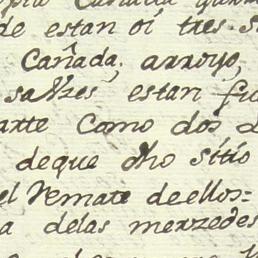 Cañada
de estan oi tres
Cañada, arroyo,
saVzes estan
arte Como dos
deque dho sitio
el Remate deellos=
a delas merzedes